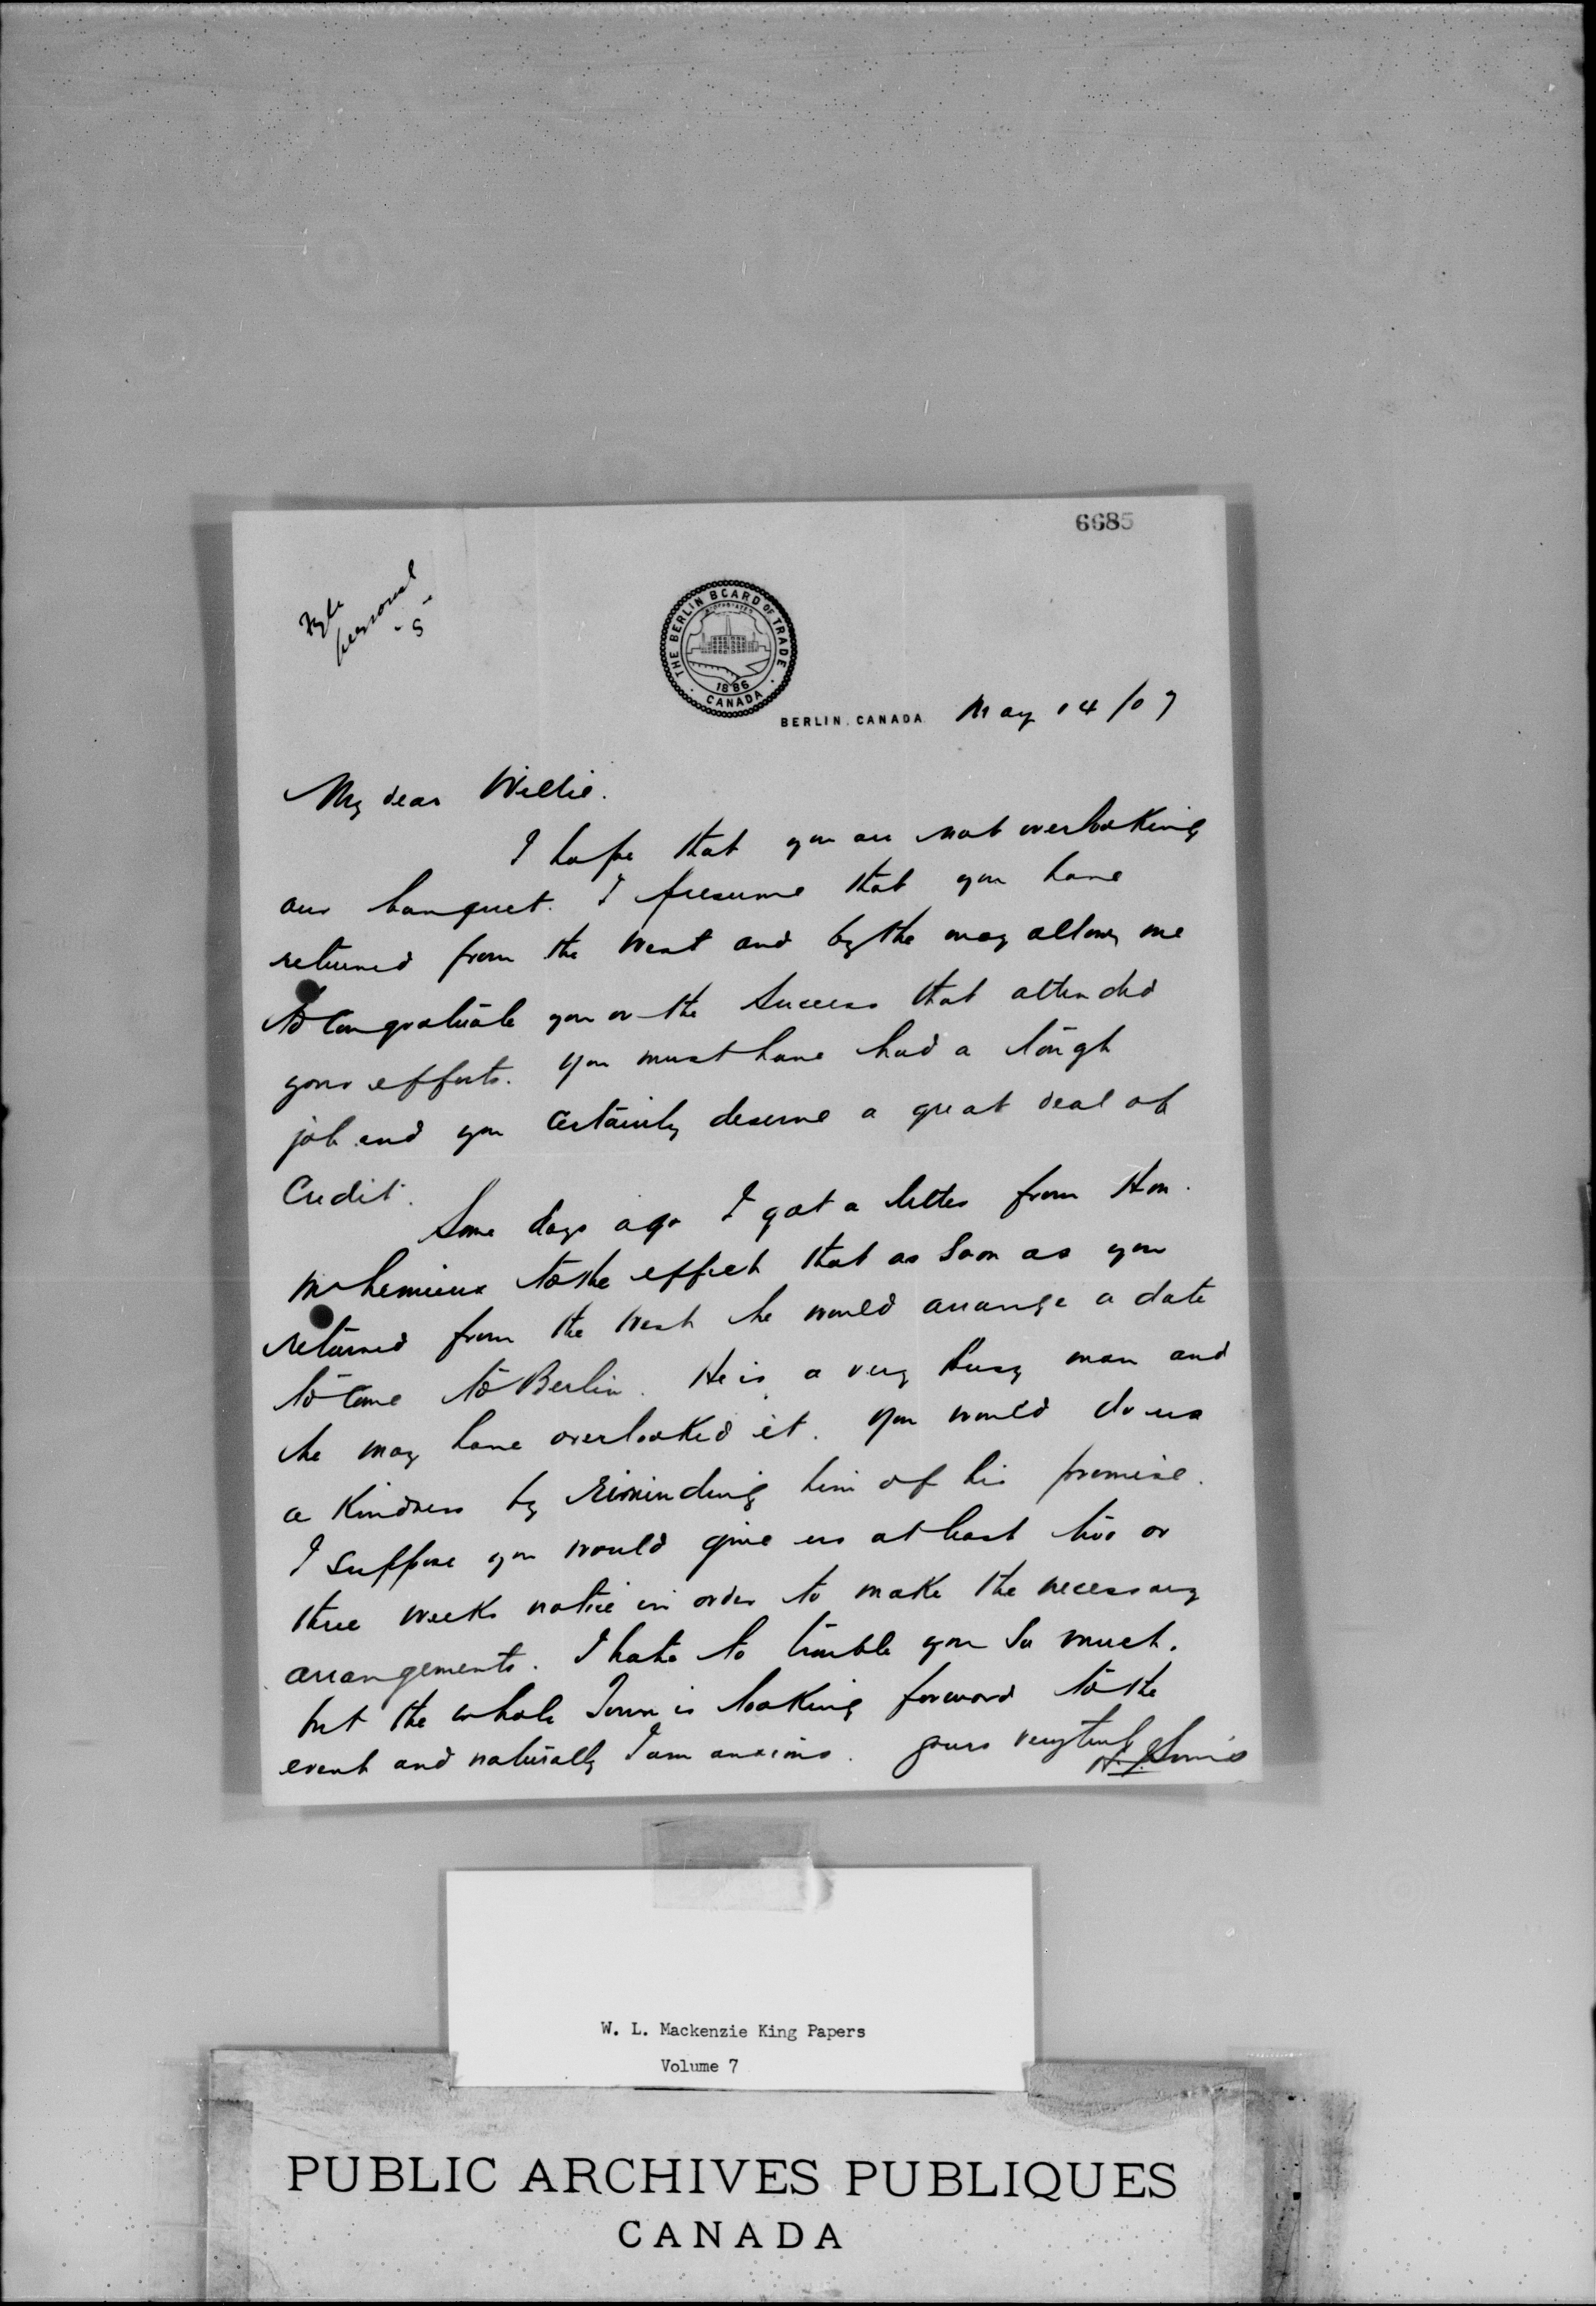 6685
File
personal
THE BERLIN BOARD OF TRADE
INCORPORATED
1886
CANADA
BERLIN, CANADA May 14/07
My dear Willie.
I hope that you are not overlooking
our banquet. I presume that you have
returned from the West and by the way allow me
to congratulate you on the success that attended
your efforts. You must have had a tough
job and you certainly deserve a great deal of
Credit.
Some days ago I got a letter from Hon.
Mr Lemieux to the effect that as soon as you
returned from the West he would arrange a date
to come to Berlin. He is a very busy man and
he may have overlooked it. You would do us
a Kindness by reminding him of his promise.
I suppose you would give us at least two or
three weeks notice in order to make the necessary
arrangements. I hate to trouble you so much.
but the whole Town is looking forward to the
event and naturally I am anxious. Yours very truly
W. L. Mackenzie King Papers
Volume 7
PUBLIC ARCHIVES PUBLIQUES
CANADA